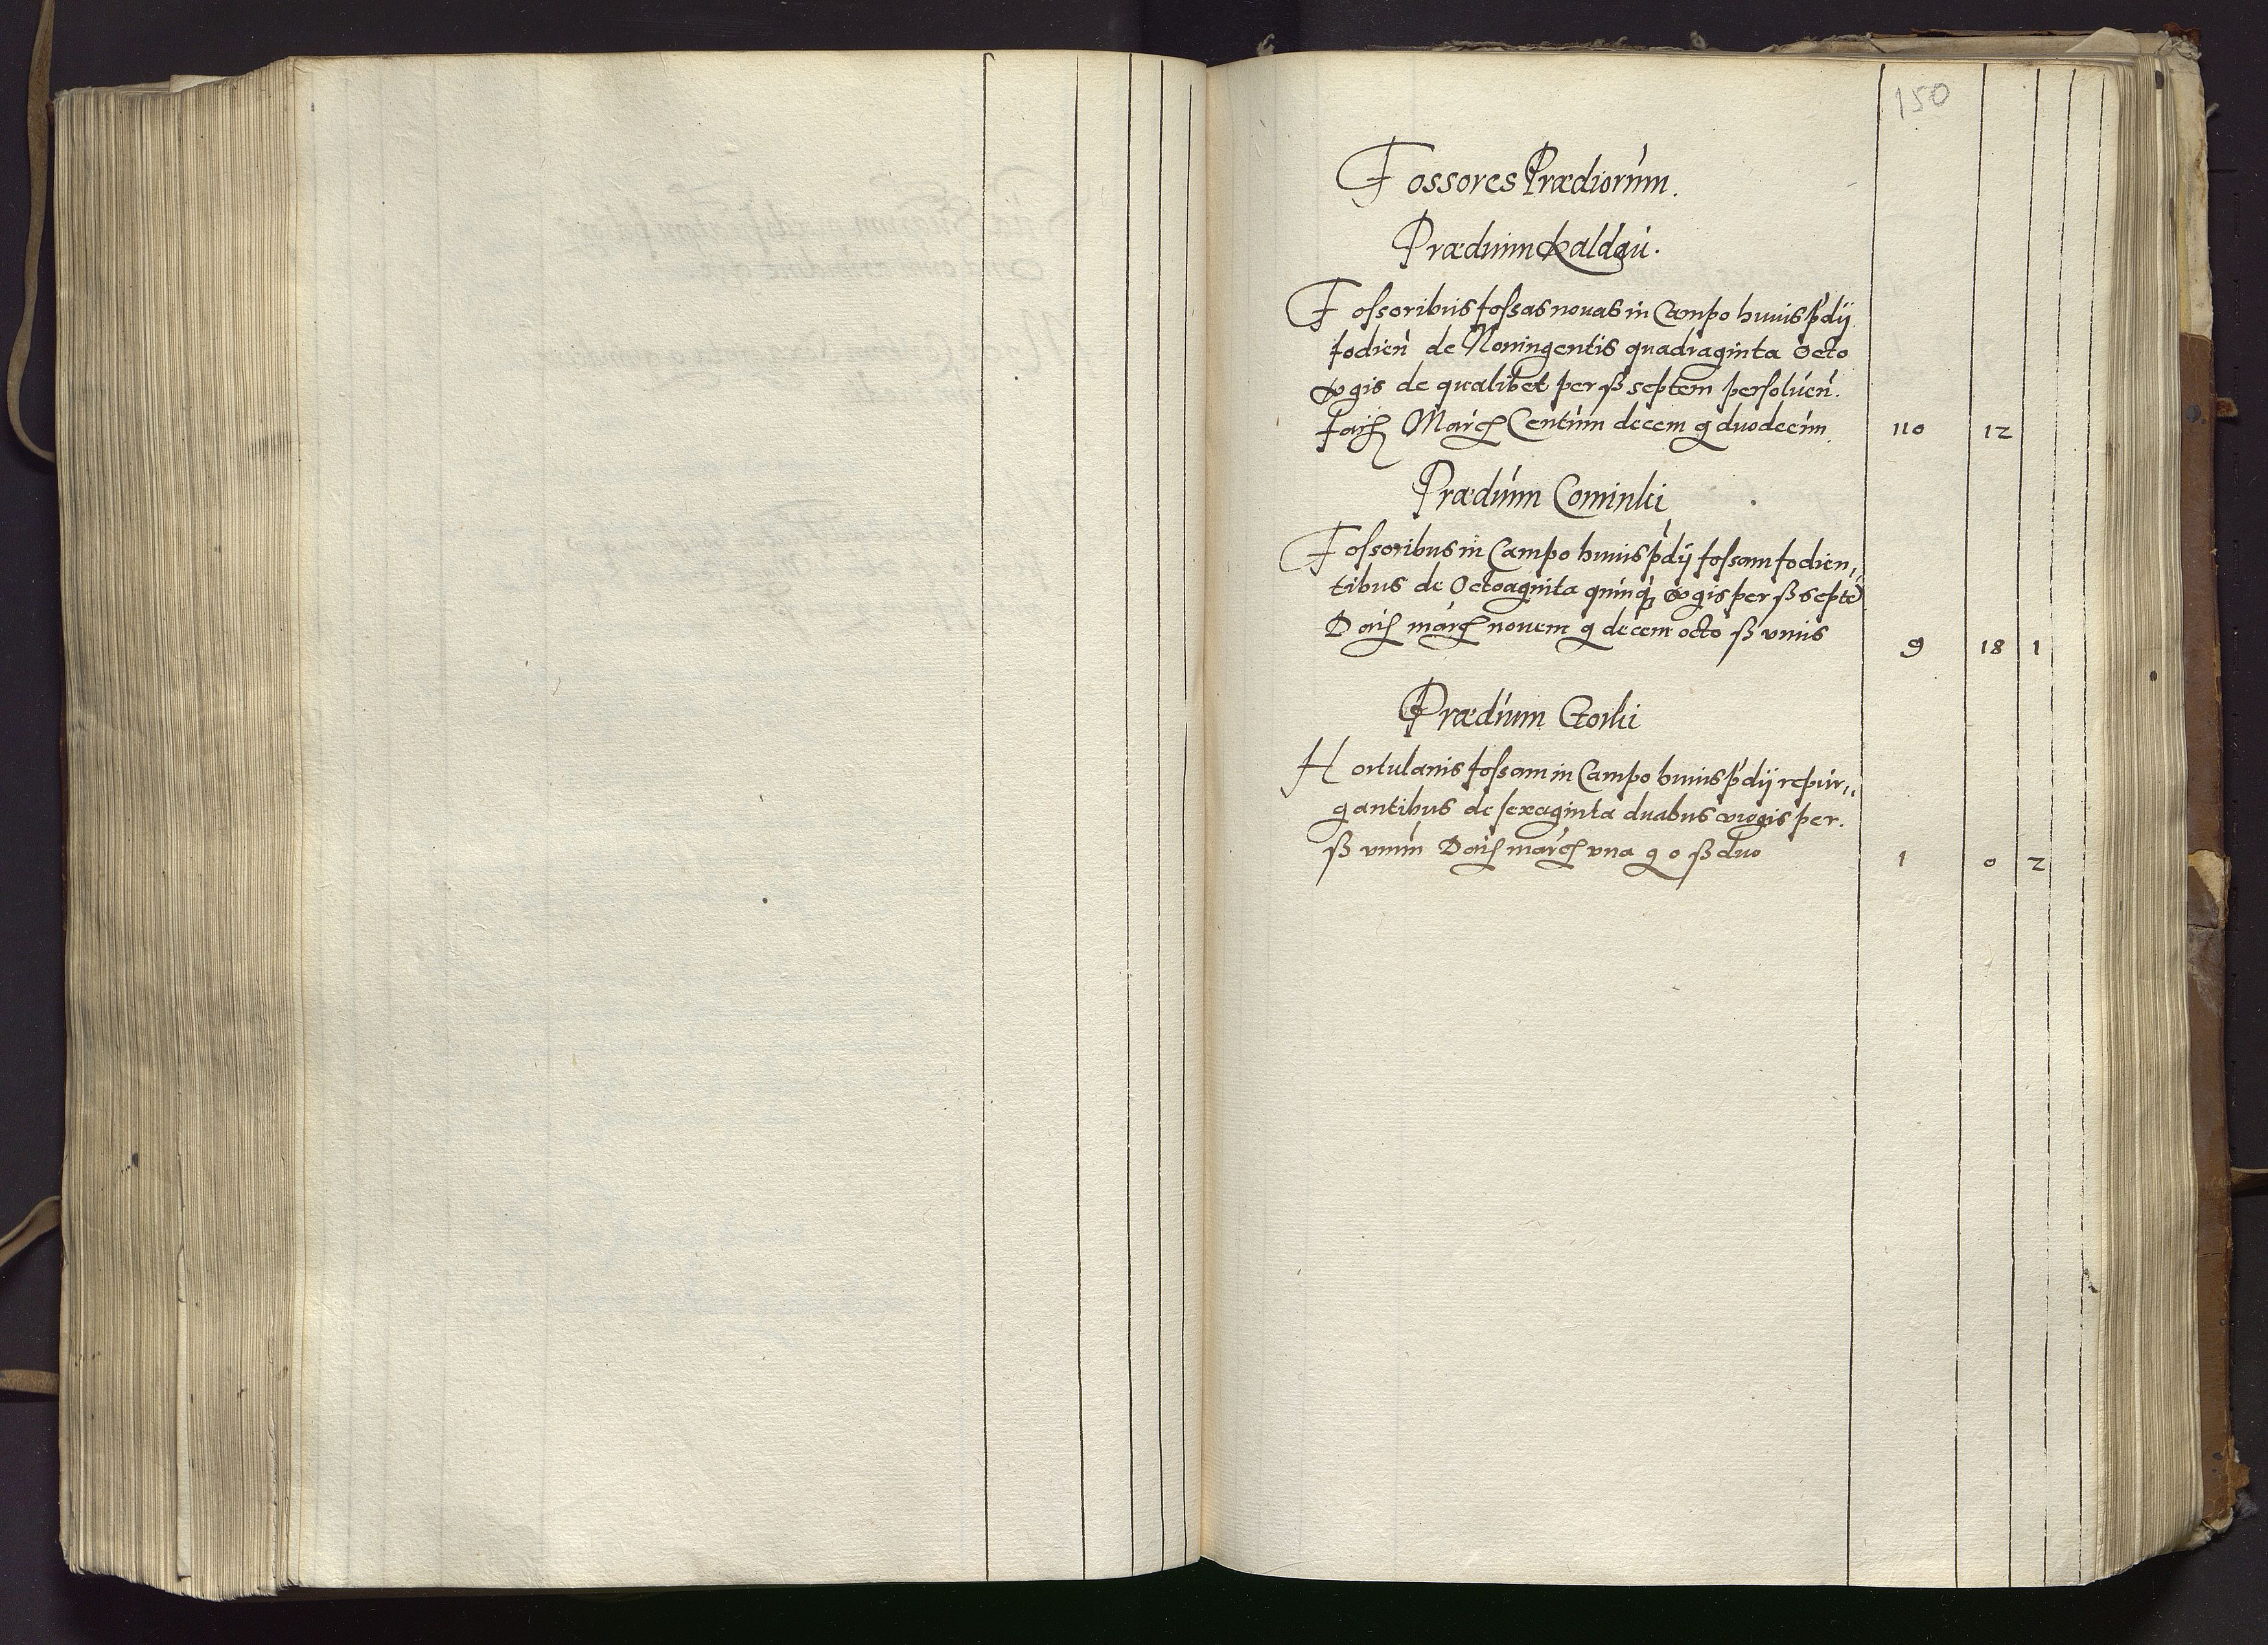 150
Fossores Prædiorum.
Prædium Kaldau.
Fossoribus fossas novas in Campo huius p̄dij
fodien̄ de Noningentis quadraginta Octo
virgis de qualibet per ß septem persoluen̄.
fac̄ Marc̄ Centum decem g̃ duodecim. 110 12
Prædium Cominki
Fossoribus in Campo huius p̄dij fossam fodien„
tibus de Octoaginta quinq̨ virgis per ß septē
Dac̄ marc̄ novem g̃ decem octo ß unus 9 18 1
Prædium Gorki
Hortulanis fossam in Campo huius p̄dij repur„
gantibus de sexaginta duabus virgis per.
ß unum Dac̄ marc̄ una g̃ 0 ß duo 1 0 2